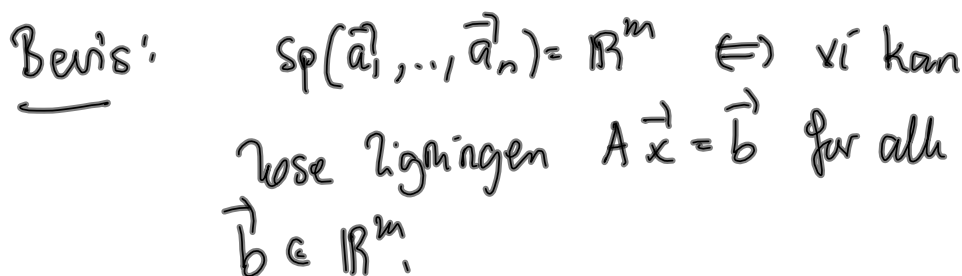 Bevis: Sp(a⃗₁,..,a⃗ₙ) = ℝᵐ ⇔ vi kan
løse ligningen Ax⃗ = b⃗ for alle
b⃗ ∈ ℝᵐ.